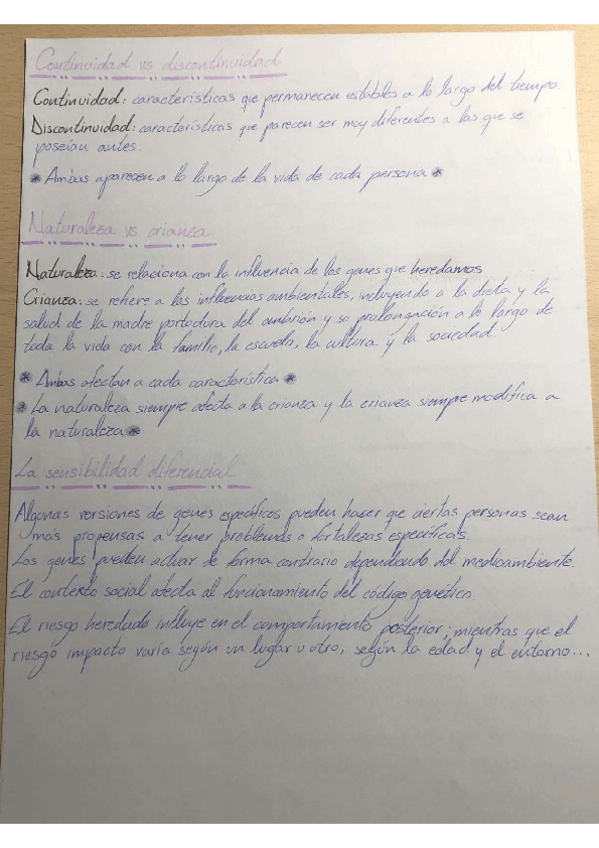 Continuidad vs discontinuidad
Continuidad: características que permanecen estables a lo largo del tiempo.
Discontinuidad: características que parecen ser muy diferentes a las que se
poseían antes.
* Ambas aparecen a lo largo de la vida de cada persona *
Naturaleza vs crianza
Naturaleza: se relaciona con la influencia de los genes que heredamos
Crianza: se refiere a las influencias ambientales, incluyendo a la dieta y la
salud de la madre portadora del embrión y se prolongación a lo largo de
toda la vida con la familia, la escuela, la cultura y la sociedad.
* Ambas afectan a cada característica *
* La naturaleza siempre afecta a la crianza y la crianza siempre modifica a
la naturaleza *
La sensibilidad diferencial
Algunas versiones de genes específicos pueden hacer que ciertas personas sean
más propensas a tener problemas o fortalezas específicas.
Los genes pueden actuar de forma contraria dependiendo del medioambiente.
El contexto social afecta al funcionamiento del código genético.
El riesgo heredado influye en el comportamiento posterior; mientras que el
riesgo impacto varía según un lugar u otro, según la edad y el entorno...